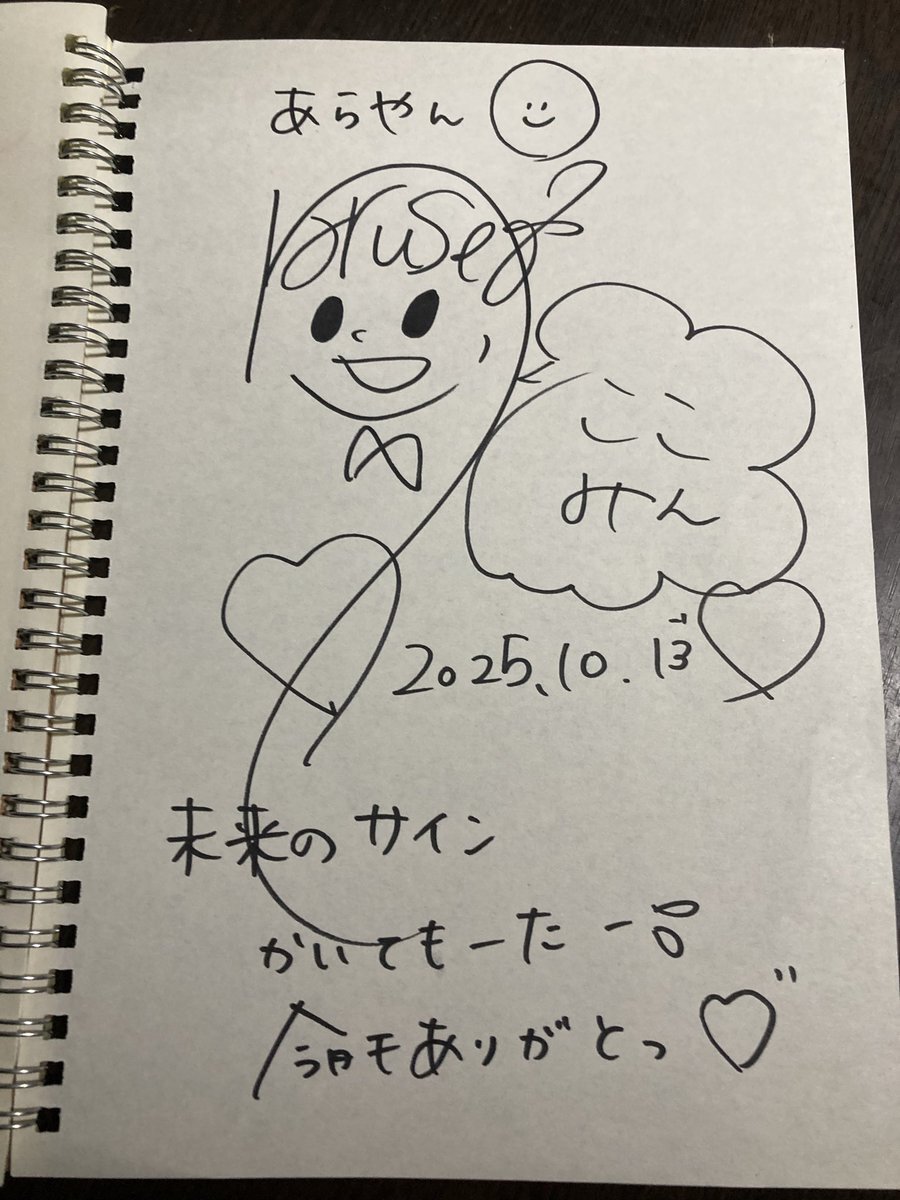 あらやん
ここ
みん
2025.10.13
未来のサイン
かいてもーたー
今日もありがとっ